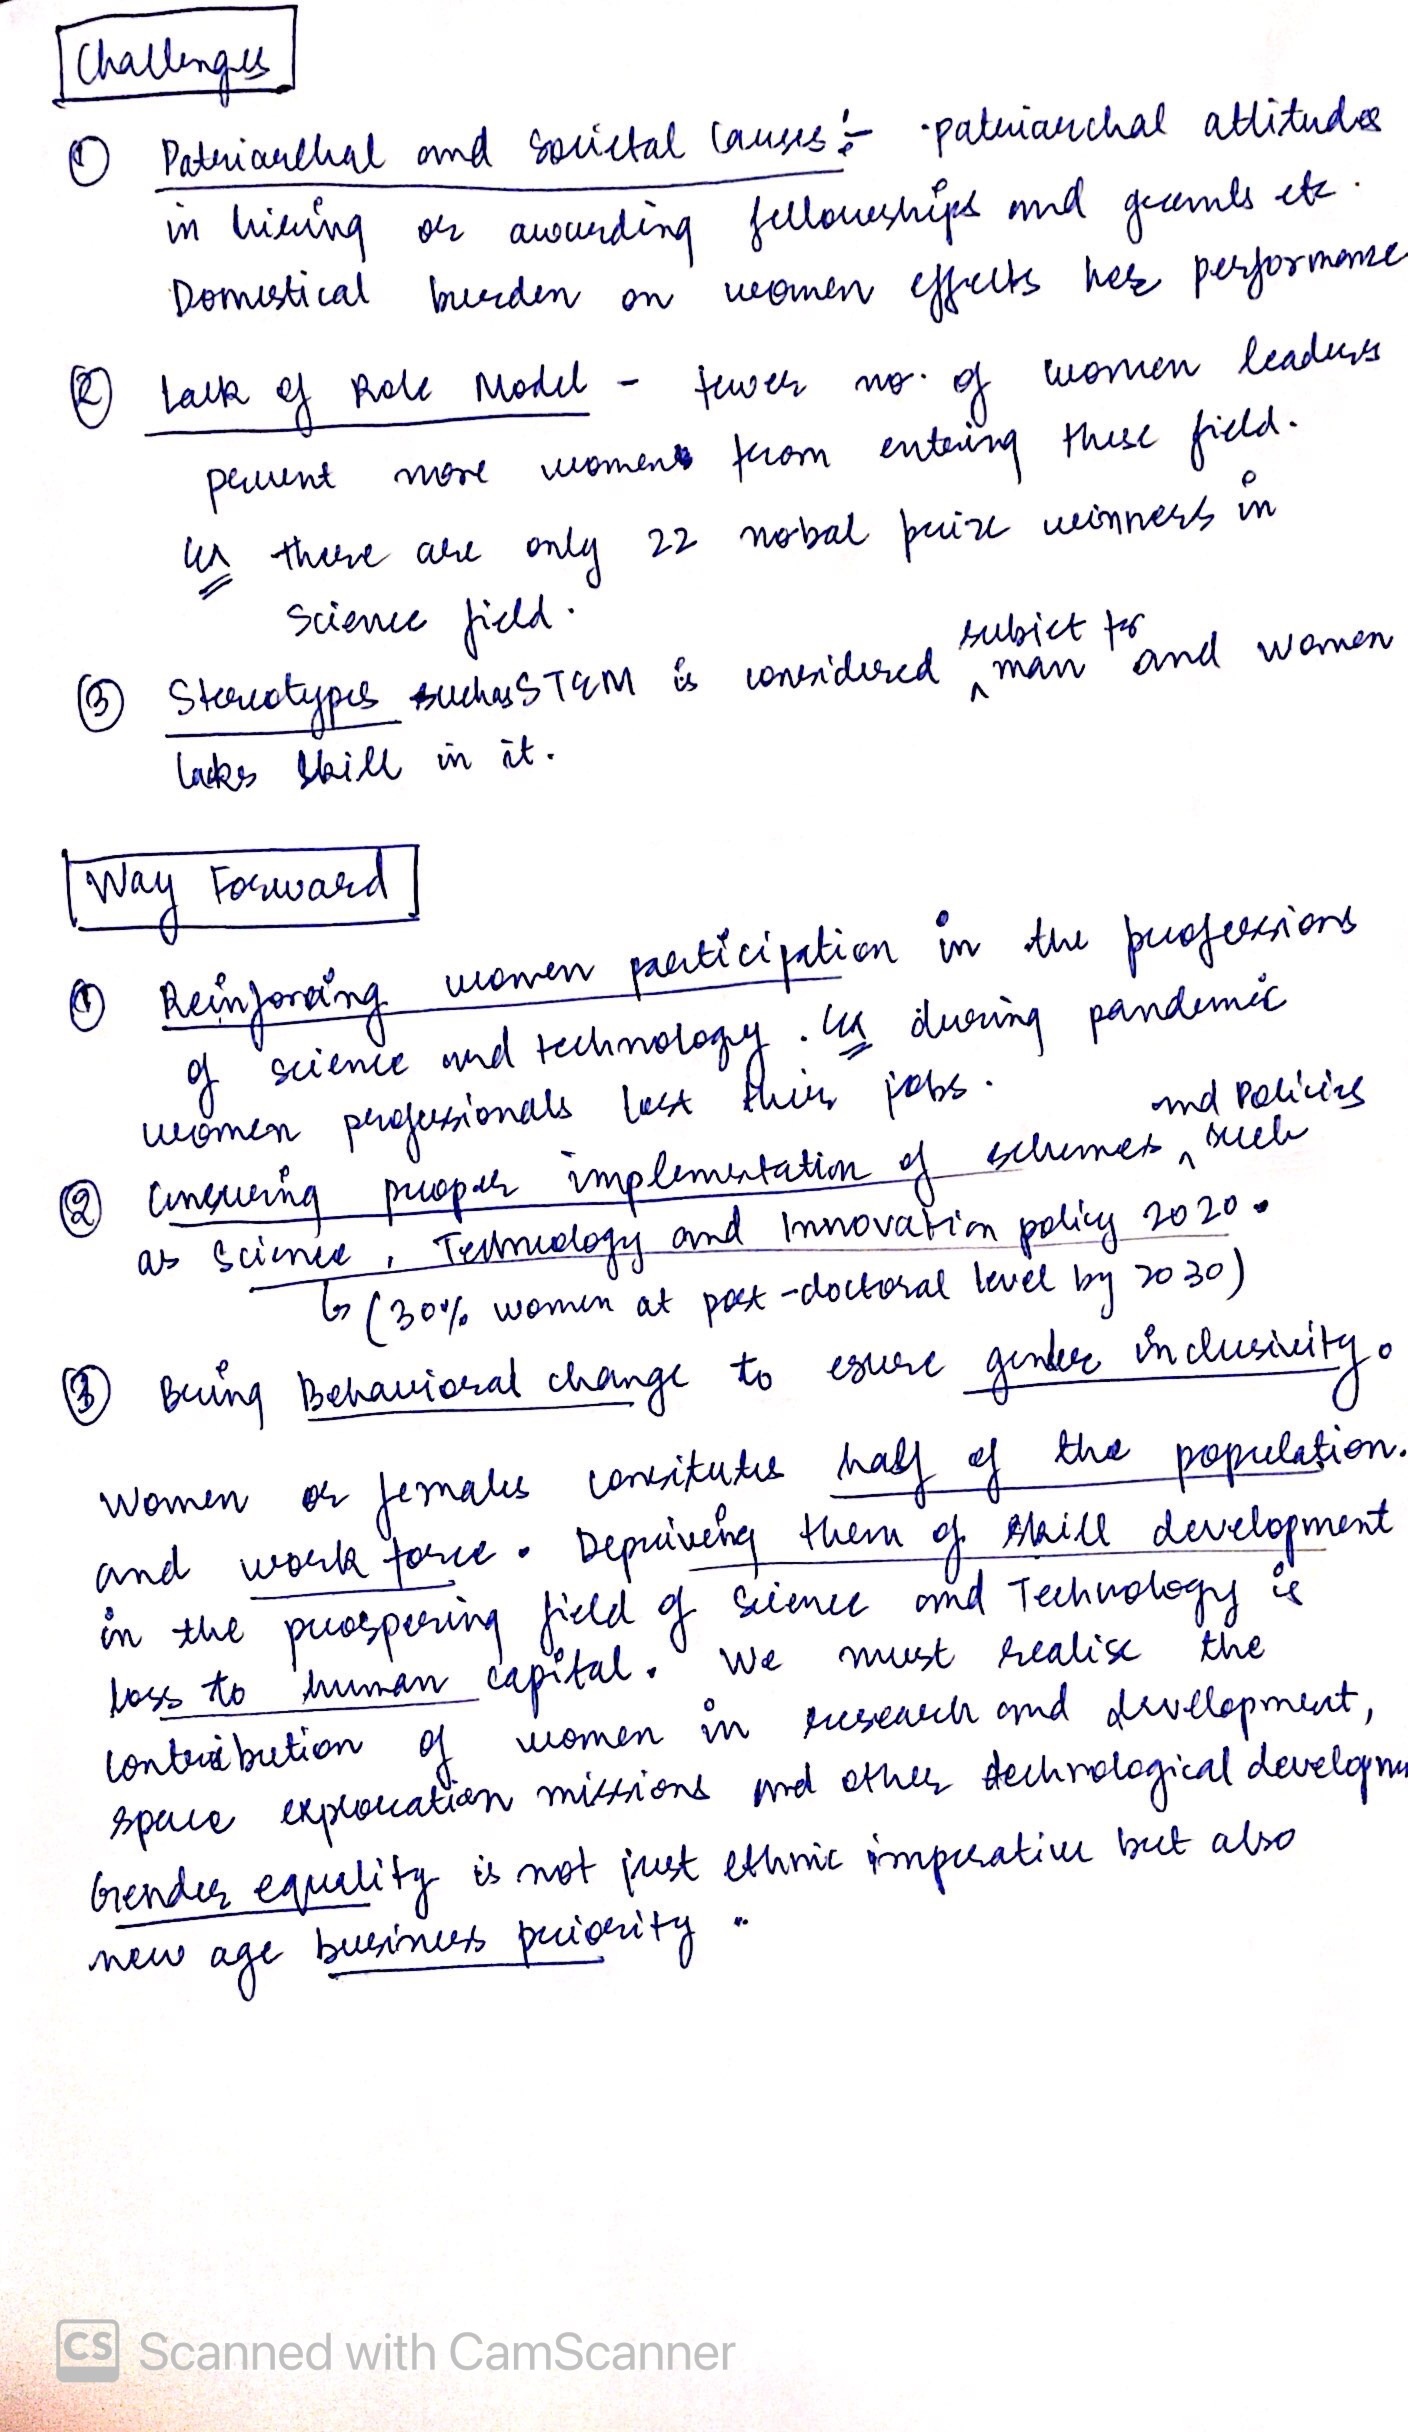 Challenges
① Patriarchal and Societal Causes :- patriarchal attitudes
in hiring or awarding fellowships and grants etc.
Domestical burden on women effects her performance
② Lack of Role Model - fewer no. of women leaders
prevent more women from entering these field.
eg there are only 22 nobal prize winners in
Science field.
③ Stereotypes such as STEM is considered subject for man and women
lacks skill in it.
Way Forward
① Reinforcing women participation in the professions
of science and technology. eg during pandemic
women professionals lost their jobs.
② Ensuring proper implementation of schemes and Policies such
as Science, Technology and Innovation policy 2020.
↳ (30% women at post-doctoral level by 2030)
③ Bring Behavioral change to esure gender inclusivity.
Women or females consitutes half of the population.
and work force. Depriving them of skill development
in the prospering field of Science and Technology is
loss to human capital. We must realise the
contribution of women in research and development,
space exploration missions and other technological developme
Gender equality is not just ethnic imperative but also
new age business priority.
CS Scanned with CamScanner